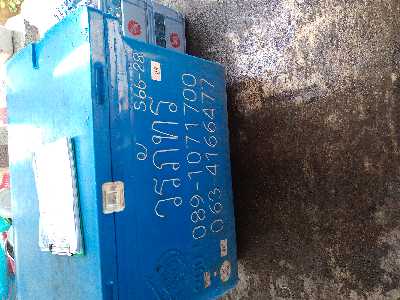 S66-28
วรภัทร์
089-1071700
063-4166477